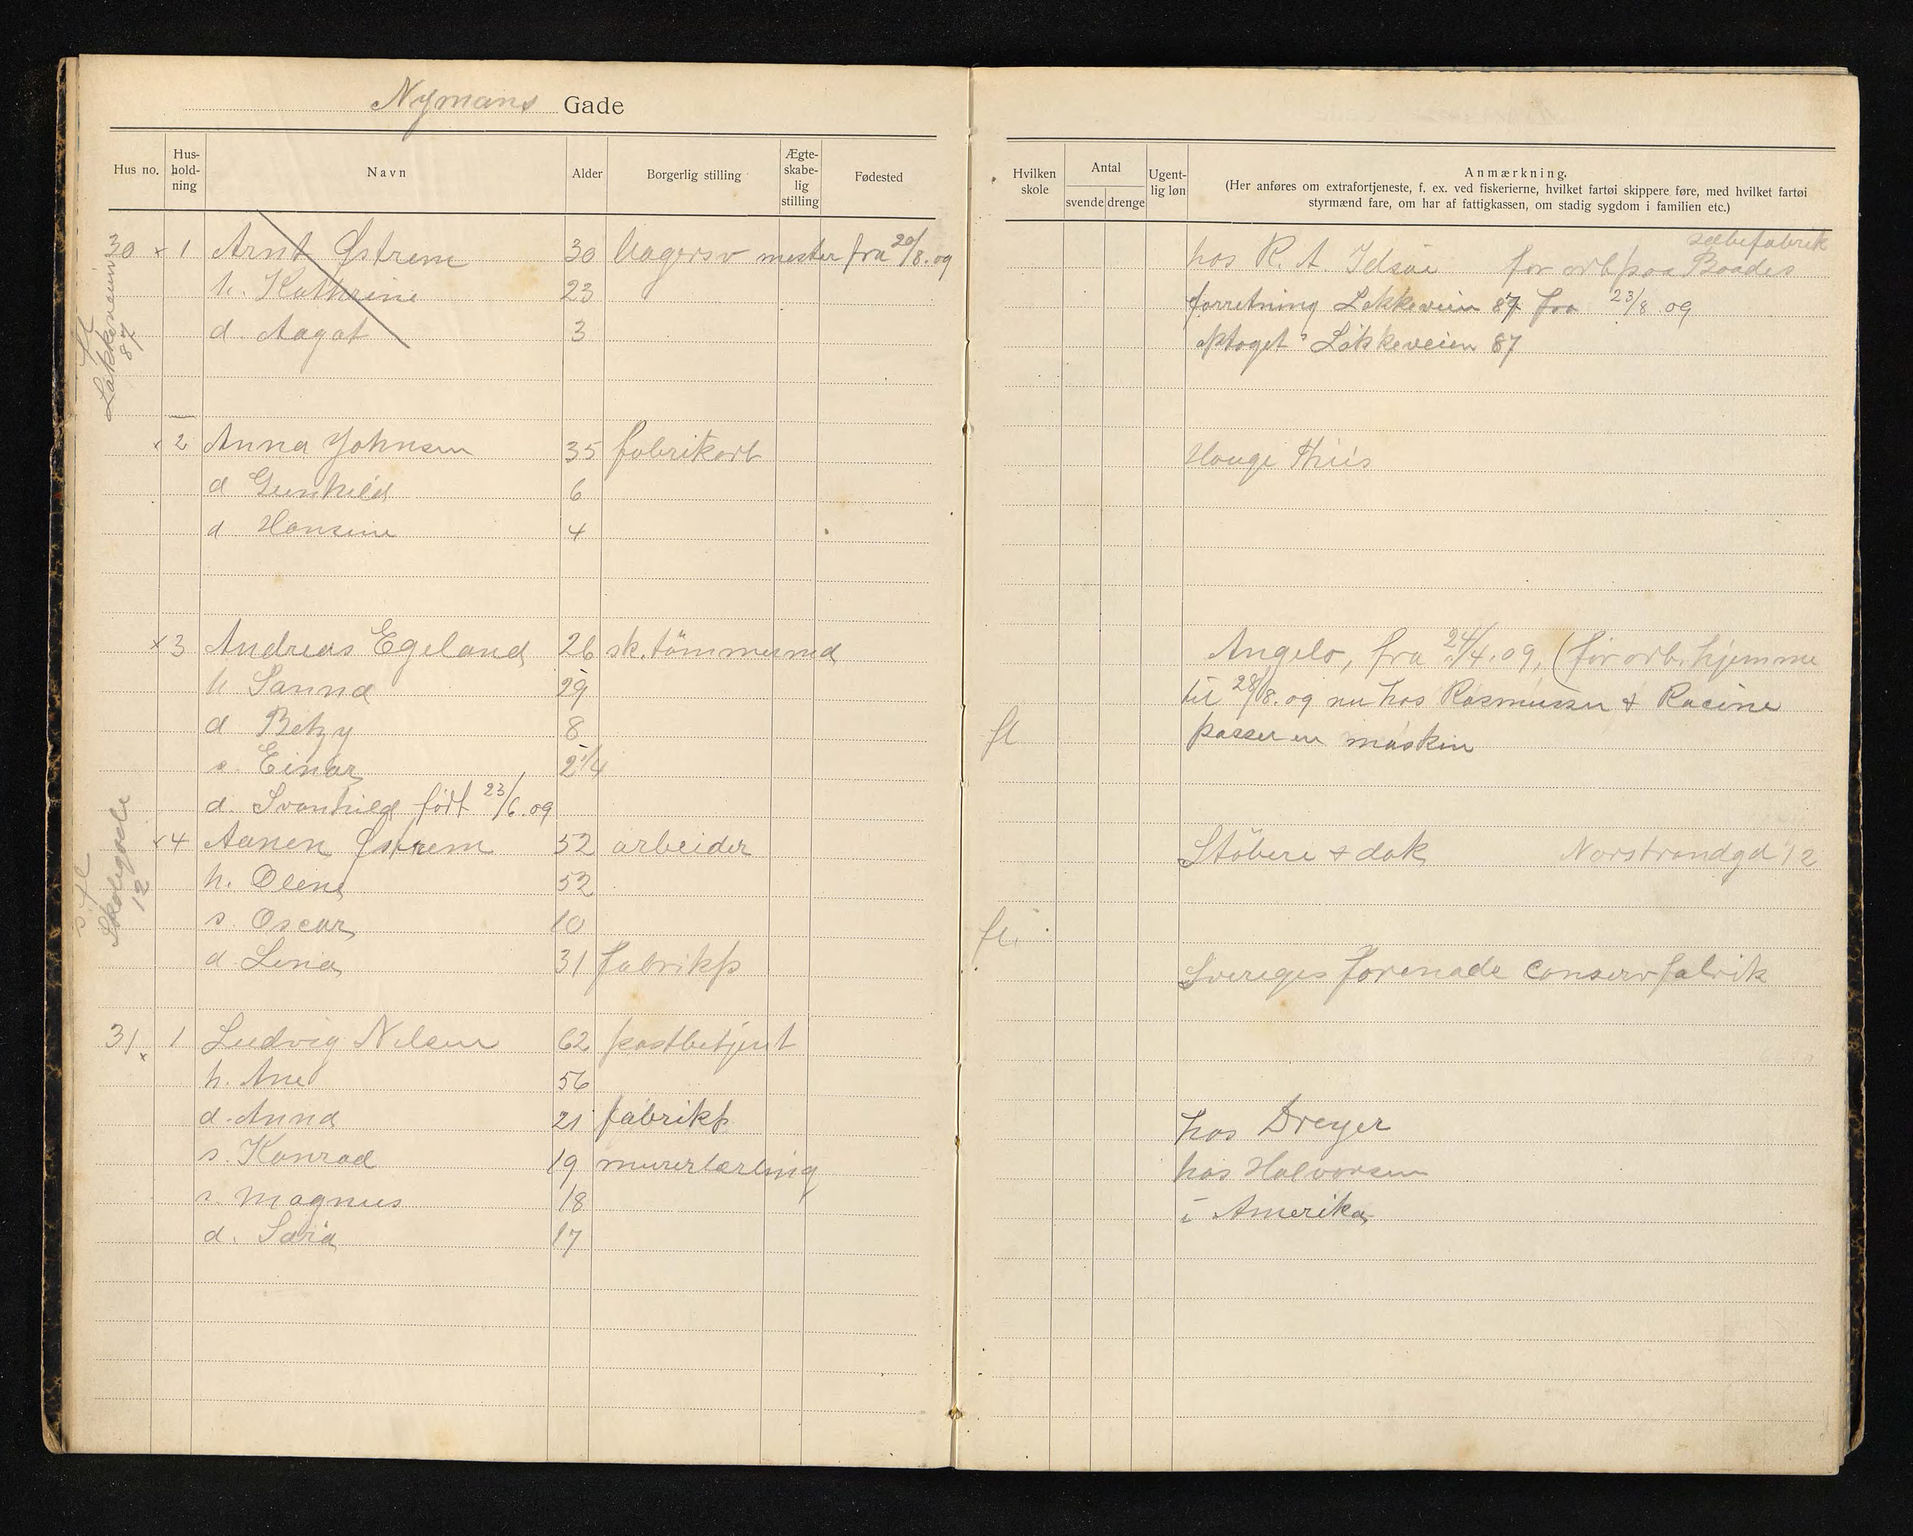 Nymans Gade
Hus no. Hus-hold-ning Navn Alder Borgerlig stilling Ægte-skabe-lig stilling Fødested
30 × 1 Arnt Østrem 30 bagersv mester fra 20/8.09
h. Kathrine 23
d. Aagot 3
fl Løkkeveien 87
× 2 Anna Johnsen 35 fabrikarb
d Gunhild 6
d Hansine 4
× 3 Andreas Egeland 26 sk.tömmermd
h Sanna 29
d Betzy 8
s. Einar 2 1/4
d. Svanhild født 23/6.09
× 4 Aanen Østrem 52 arbeider
h. Olene 52
s. Oscar 10
d. Lina 31 fabrikp
s. fl Skolegade 12
31 × 1 Ludvig Nilsen 62 postbetjent
h. Ane 56
d. Anna 21 fabrikp
s. Konrad 19 murerlærling
s. Magnus 18
d. Sara 17
Hvilken skole Antal svende drenge Ugent-lig løn Anmærkning.
(Her anføres om extrafortjeneste, f. ex. ved fiskerierne, hvilket fartøi skippere føre, med hvilket fartøi
styrmænd fare, om har af fattigkassen, om stadig sygdom i familien etc.)
sæbefabrik
hos R. A Idsøe før arb paa Boades
forretning Løkkeveien 87 fra 23/8 09
optaget Løkkeveien 87
Houge Thiis
Angelo, fra 24/4.09, (før arb. hjemme
til 28/8.09 nu hos Rasmussen & Racine
fl passer en maskin
Stöberi & dok Norstrandgd 12
fl.
Sveriges forenade conservfabrik
hos Dreyer
hos Halvorsen
i Amerika